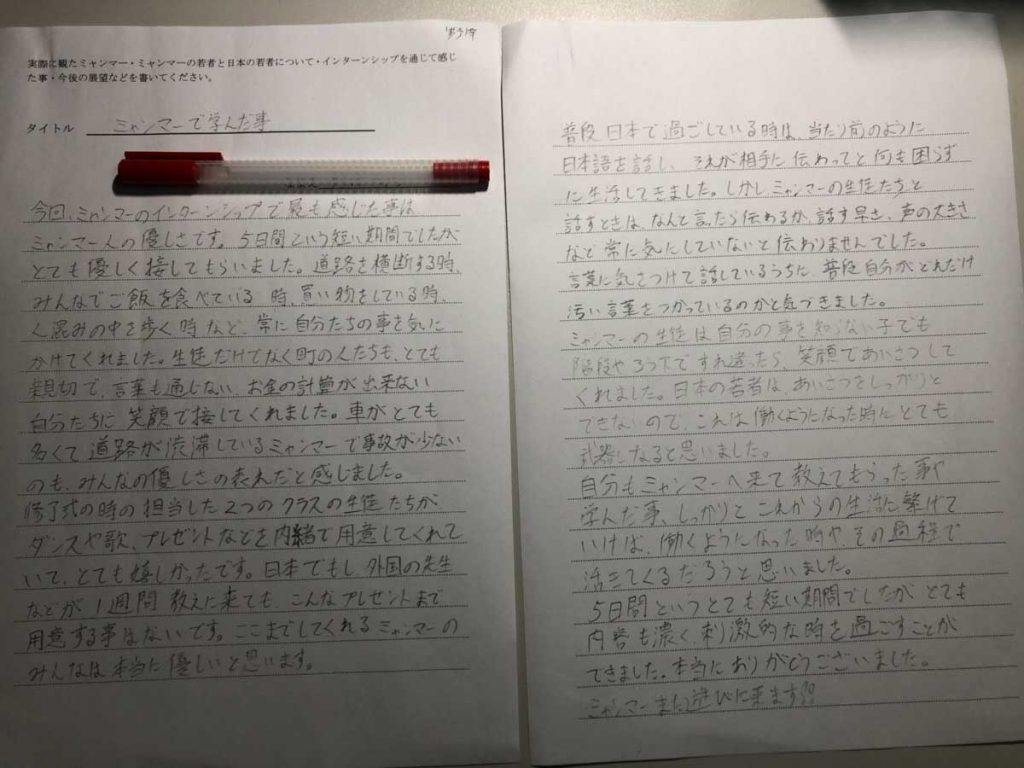 実際に観たミャンマー・ミャンマーの若者と日本の若者について・インターンシップを通じて感じ
た事・今後の展望などを書いてください。
タイトル ミャンマーで学んだ事
今回、ミャンマーのインターンシップで最も感じた事は
ミャンマー人の優しさです。5日間という短い期間でしたが
とても優しく接してもらいました。道路を横断する時、
みんなでご飯を食べている時、買い物をしている時、
人混みの中を歩く時など、常に自分たちの事を気に
かけてくれました。生徒だけでなく町の人たちも、とても
親切で、言葉も通じない、お金の計算が出来ない
自分たちに笑顔で接してくれました。車がとても
多くて道路が渋滞しているミャンマーで事故が少ない
のも、みんなの優しさの表れだと感じました。
修了式の時の担当した2つのクラスの生徒たちが、
ダンスや歌、プレゼントなどを内緒で用意してくれて
いて、とても嬉しかったです。日本でもし外国の先生
などが1週間教えに来ても、こんなプレゼントまで
用意する事はないです。ここまでしてくれるミャンマーの
みんなは本当に優しいと思います。
普段日本で過ごしている時は、当たり前のように
日本語を話し、それが相手に伝わってと何も困らず
に生活してきました。しかしミャンマーの生徒たちと
話すときは、なんと言ったら伝わるか、話す早さ、声の大きさ
など常に気にしていないと伝わりませんでした。
言葉に気をつけて話しているうちに、普段自分がどれだけ
汚い言葉をつかっているのかと気づきました。
ミャンマーの生徒は自分の事を知らない子でも
階段やろう下ですれ違ったら、笑顔であいさつして
くれました。日本の若者は、あいさつをしっかりと
できないので、これは働くようになった時にとても
武器になると思いました。
自分もミャンマーへ来て教えてもらった事や
学んだ事、しっかりとこれからの生活に繋げて
いけば、働くようになった時や、その過程で
活きてくるだろうと思いました。
5日間というとても短い期間でしたがとても
内容も濃く刺激的な時を過ごすことが
できました。本当にありがとうございました。
ミャンマーまた遊びに来ます!!